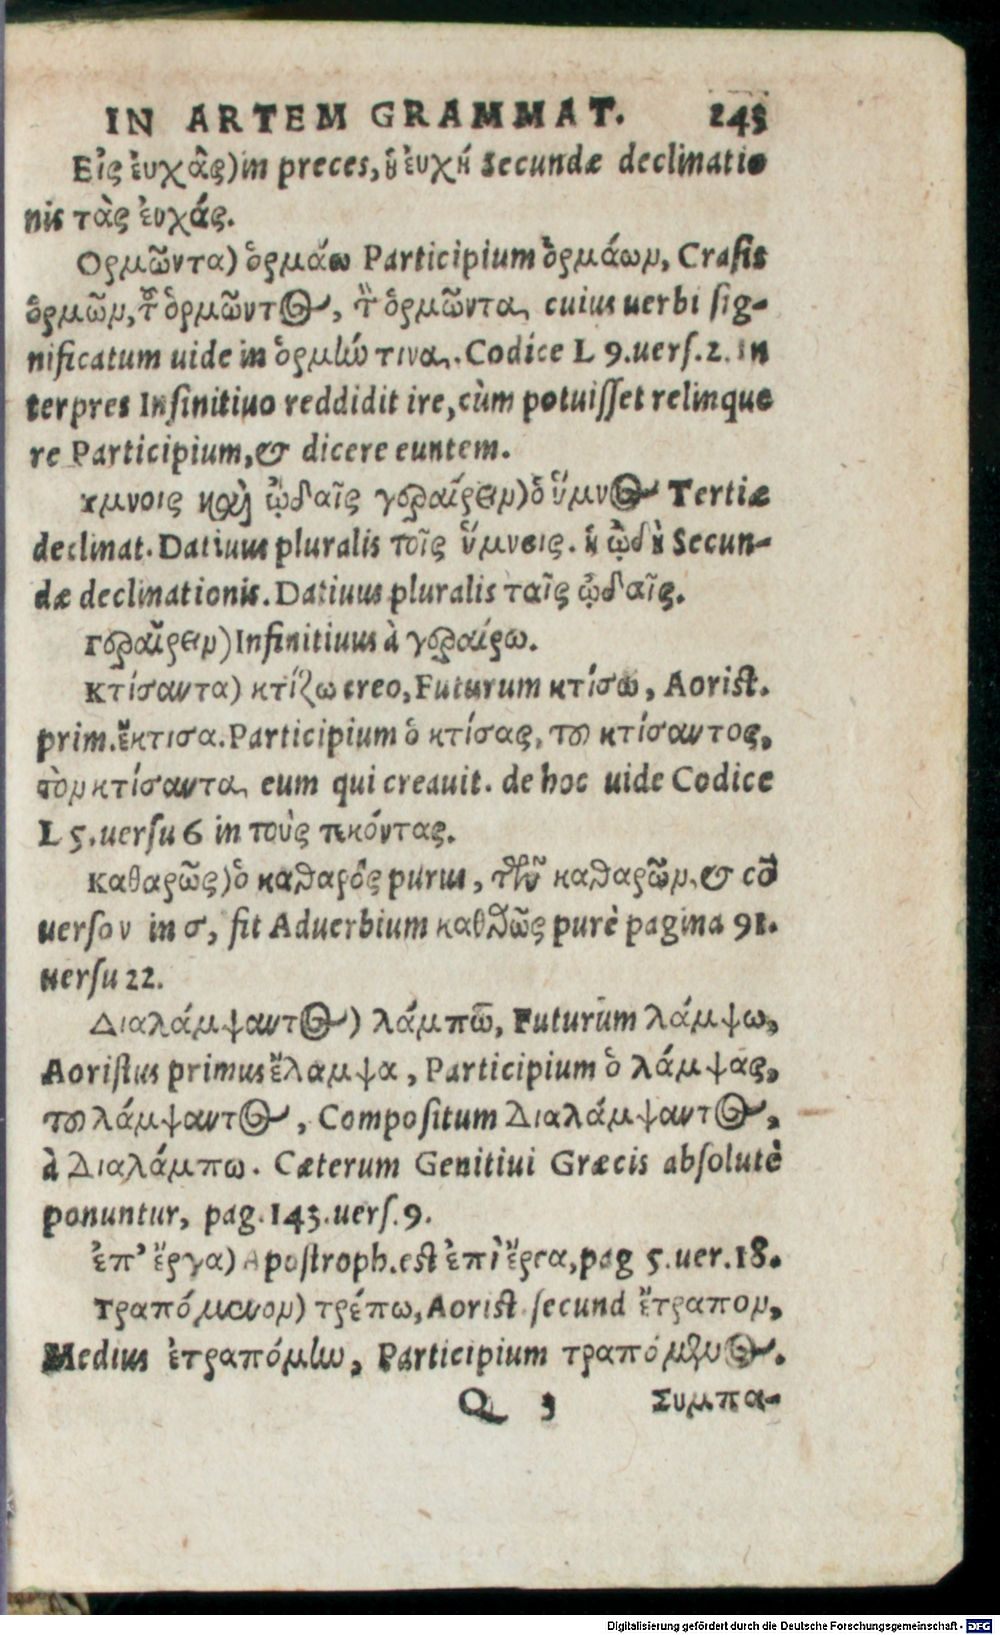 IN ARTEM GRAMMAT. 245
Εἰς ἐυχὰς) in preces, ἡ ἐυχή Secundæ declinatio
nis τὰς ἐυχάς.
Ορμῶντα) ὁρμάω Participium ὁρμάων, Crasis
ὁρμῶν, τ͂ ὁρμῶντος, τ̀ ὁρμῶντα, cuius uerbi sig-
nificatum uide in ὁρμήν τινα. Codice L 9. uers. 2. In
terpres Infinitiuo reddidit ire, cùm potuisset relinque
re Participium, & dicere euntem.
Υμνοις καὶ ᾠδαῖς γεραίρειν) ὁ ὕμνος Tertiæ
declinat. Datiuus pluralis τοῖς ὕμνοις. ἡ ᾠδὴ Secun-
dæ declinationis. Datiuus pluralis ταῖς ᾠδαῖς.
Γεραίρειν) Infinitiuus à γεραίρω.
Κτίσαντα) κτίζω creo, Futurum κτίσω, Aorist.
prim. ἔκτισα. Participium ὁ κτίσας, του κτίσαντος,
τὸν κτίσαντα, eum qui creauit. de hoc uide Codice
L 5. uersu 6 in τοὺς τεκόντας.
Καθαρῶς) ὁ καθαρός purus, τῶν καθαρῶν, & cō
uerso ν in σ, fit Aduerbium καθαρῶς purè pagina 91.
uersu 22.
Διαλάμψαντος) λάμπω, Futurum λάμψω,
Aoristus primus ἔλαμψα, Participium ὁ λάμψας,
του λάμψαντος, Compositum Διαλάμψαντος,
à Διαλάμπω. Cæterum Genitiui Græcis absolutè
ponuntur, pag. 143. uers. 9.
ἐπ' ἔργα) Apostroph. est ἐπὶ ἔργα, pag 5. uer. 18.
Τραπόμενον) τρέπω, Aorist. secund ἔτραπον,
Medius ἐτραπόμην, Participium τραπόμενος.
Q 3 Συμπα-
Digitalisierung gefördert durch die Deutsche Forschungsgemeinschaft - DFG